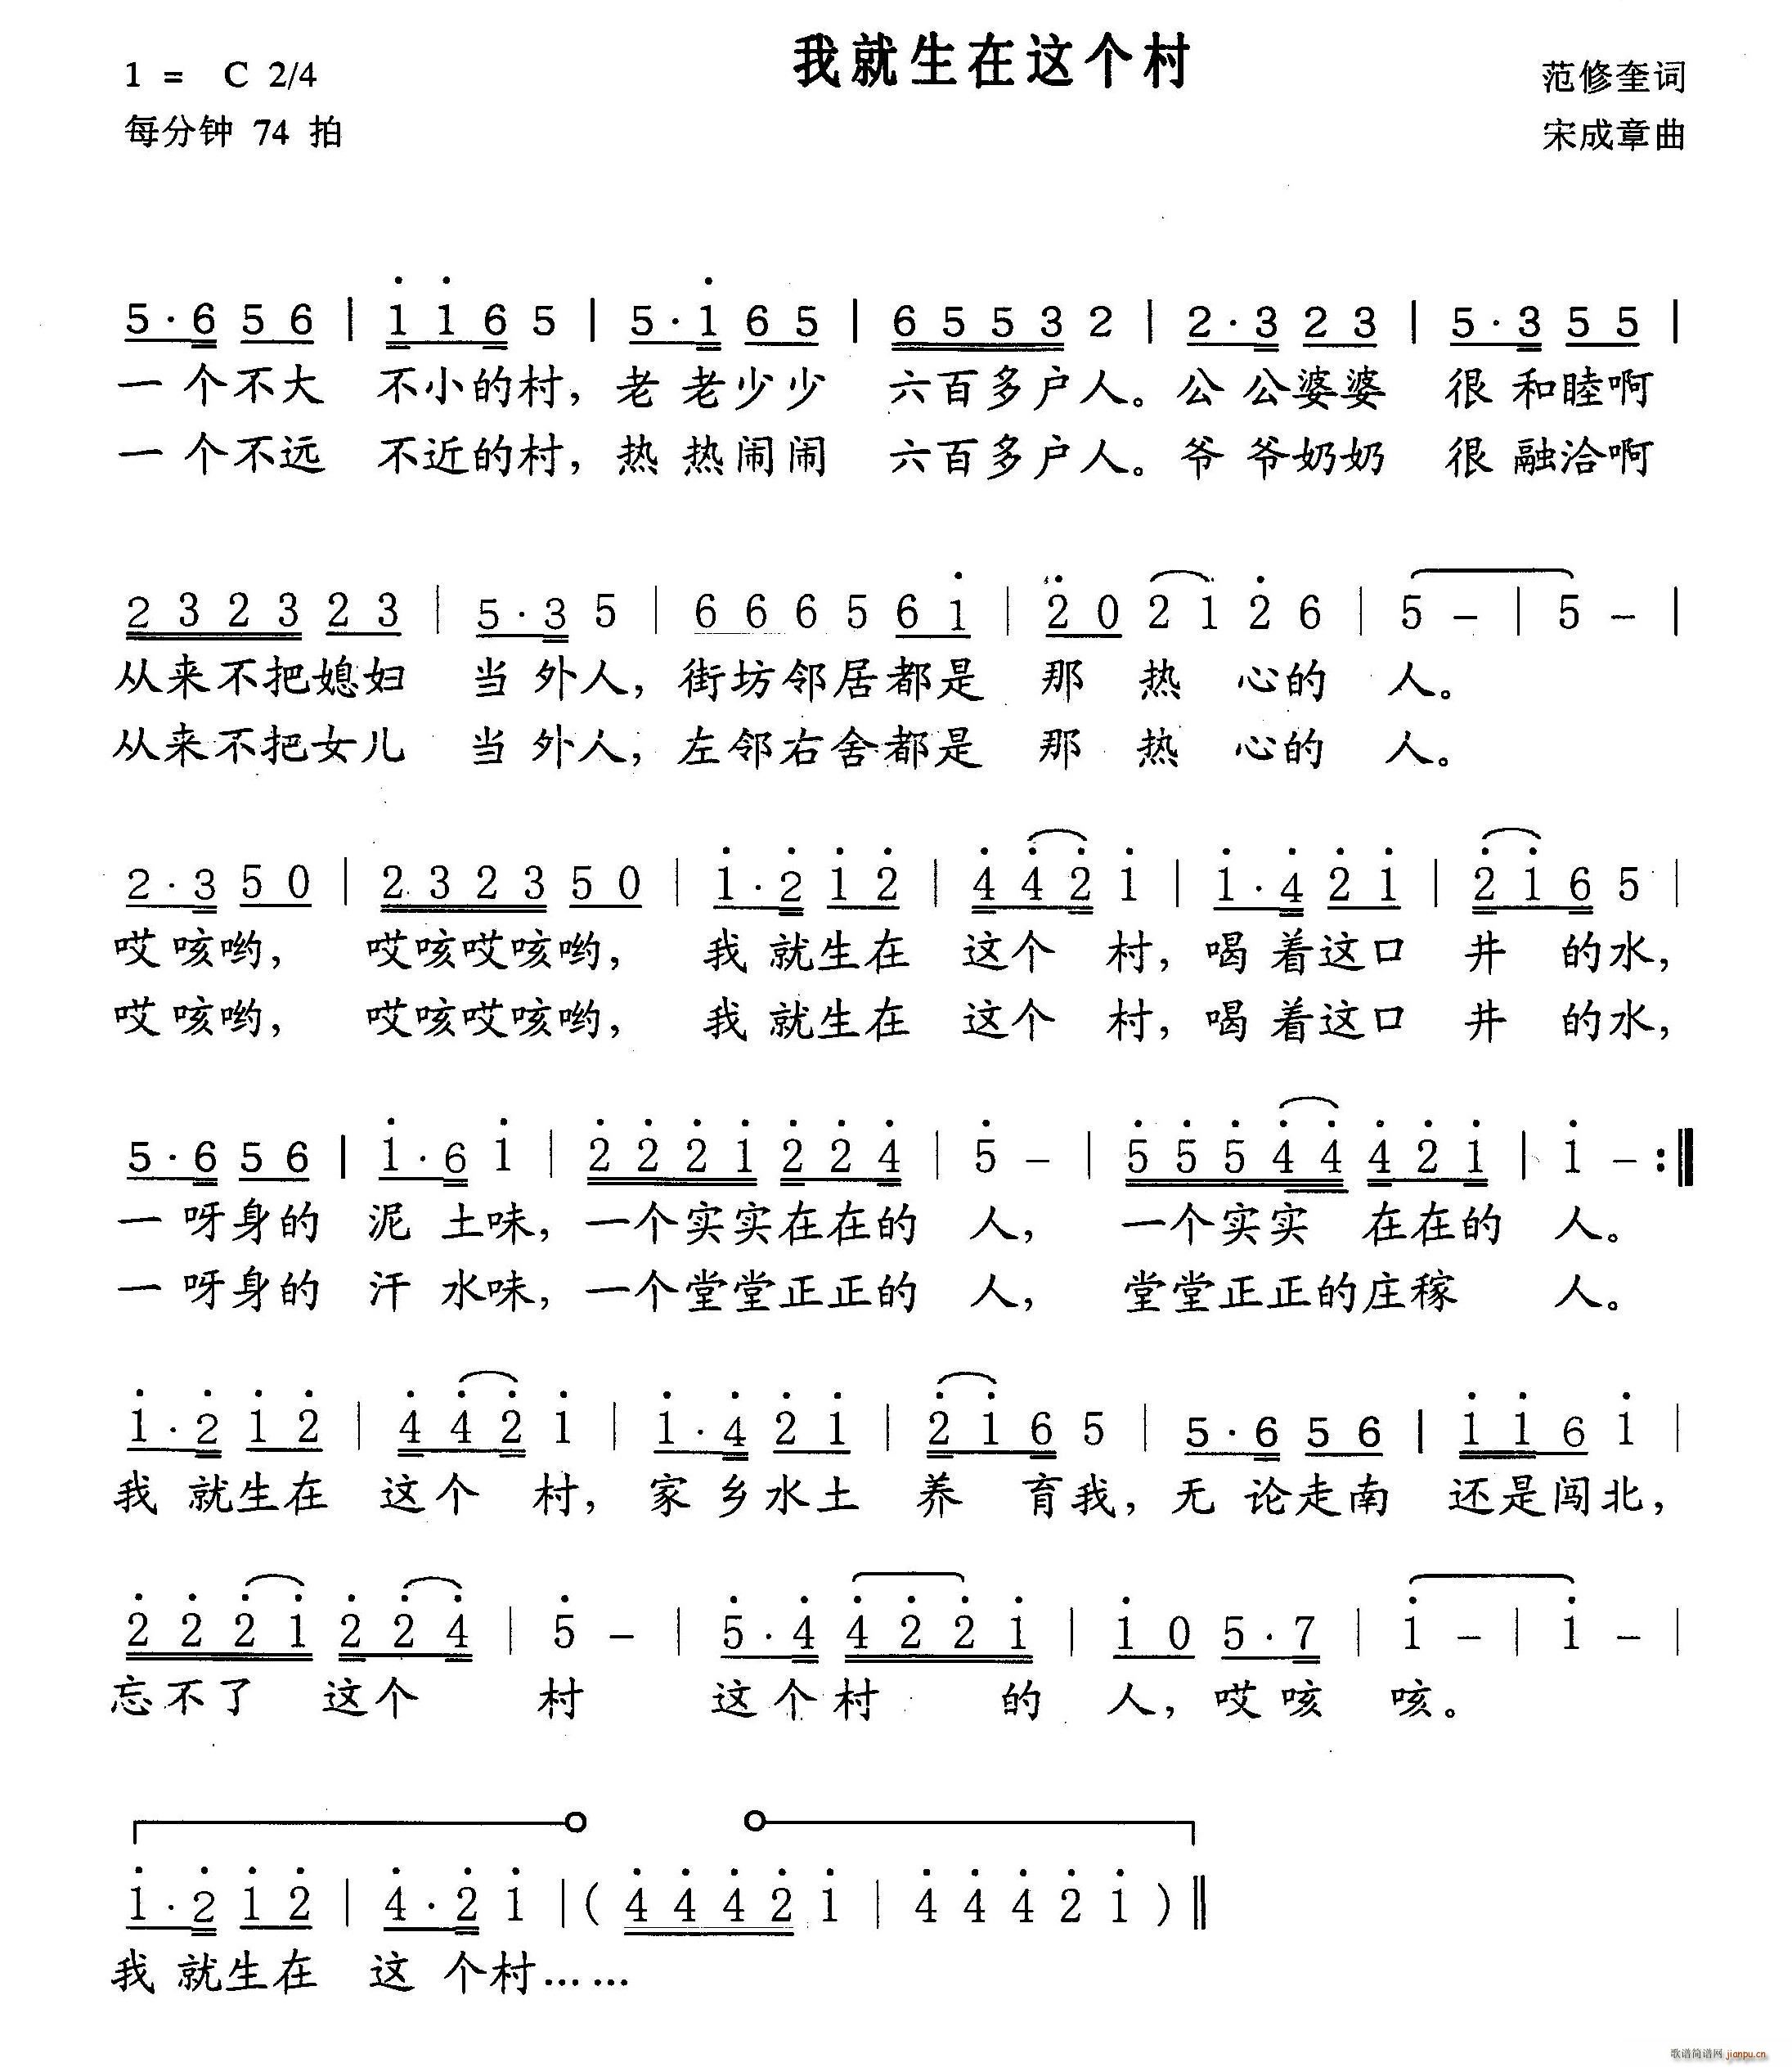 我就生在这个村
1 = C 2/4
范修奎词
每分钟 74 拍
宋成章曲
5·6 5 6 | 1 1 6 5 | 5·1 6 5 | 6 5 5 3 2 | 2·3 2 3 | 5·3 5 5 |
一个不大 不小的村，老老少少 六百多户人。公公婆婆 很和睦啊
一个不远 不近的村，热热闹闹 六百多户人。爷爷奶奶 很融洽啊
2 3 2 3 2 3 | 5·3 5 | 6 6 6 5 6 1 | 2 0 2 1 2 6 | 5 – | 5 – |
从来不把媳妇 当外人，街坊邻居都是 那 热 心的 人。
从来不把女儿 当外人，左邻右舍都是 那 热 心的 人。
2·3 5 0 | 2 3 2 3 5 0 | 1·2 1 2 | 4 4 2 1 | 1·4 2 1 | 2 1 6 5 |
哎咳哟， 哎咳哎咳哟， 我就生在 这个 村，喝着这口 井 的水，
哎咳哟， 哎咳哎咳哟， 我就生在 这个 村，喝着这口 井 的水，
5·6 5 6 | 1·6 1 | 2 2 2 1 2 2 4 | 5 – | 5 5 5 4 4 4 2 1 | 1 – :‖
一呀身的 泥土味，一个实实在在的 人， 一个实实 在在的 人。
一呀身的 汗水味，一个堂堂正正的 人， 堂堂正正的庄稼 人。
1·2 1 2 | 4 4 2 1 | 1·4 2 1 | 2 1 6 5 | 5·6 5 6 | 1 1 6 1 |
我就生在 这个 村，家乡水土 养 育我，无论走南 还是闯北，
2 2 2 1 2 2 4 | 5 – | 5·4 4 2 2 1 | 1 0 5·7 | 1 – | 1 – |
忘不了 这个 村 这个村 的 人，哎咳 咳。
1·2 1 2 | 4·2 1 | ( 4 4 4 2 1 | 4 4 4 2 1 ) ‖
我就生在 这个村……
歌谱简谱网 jianpu.cn